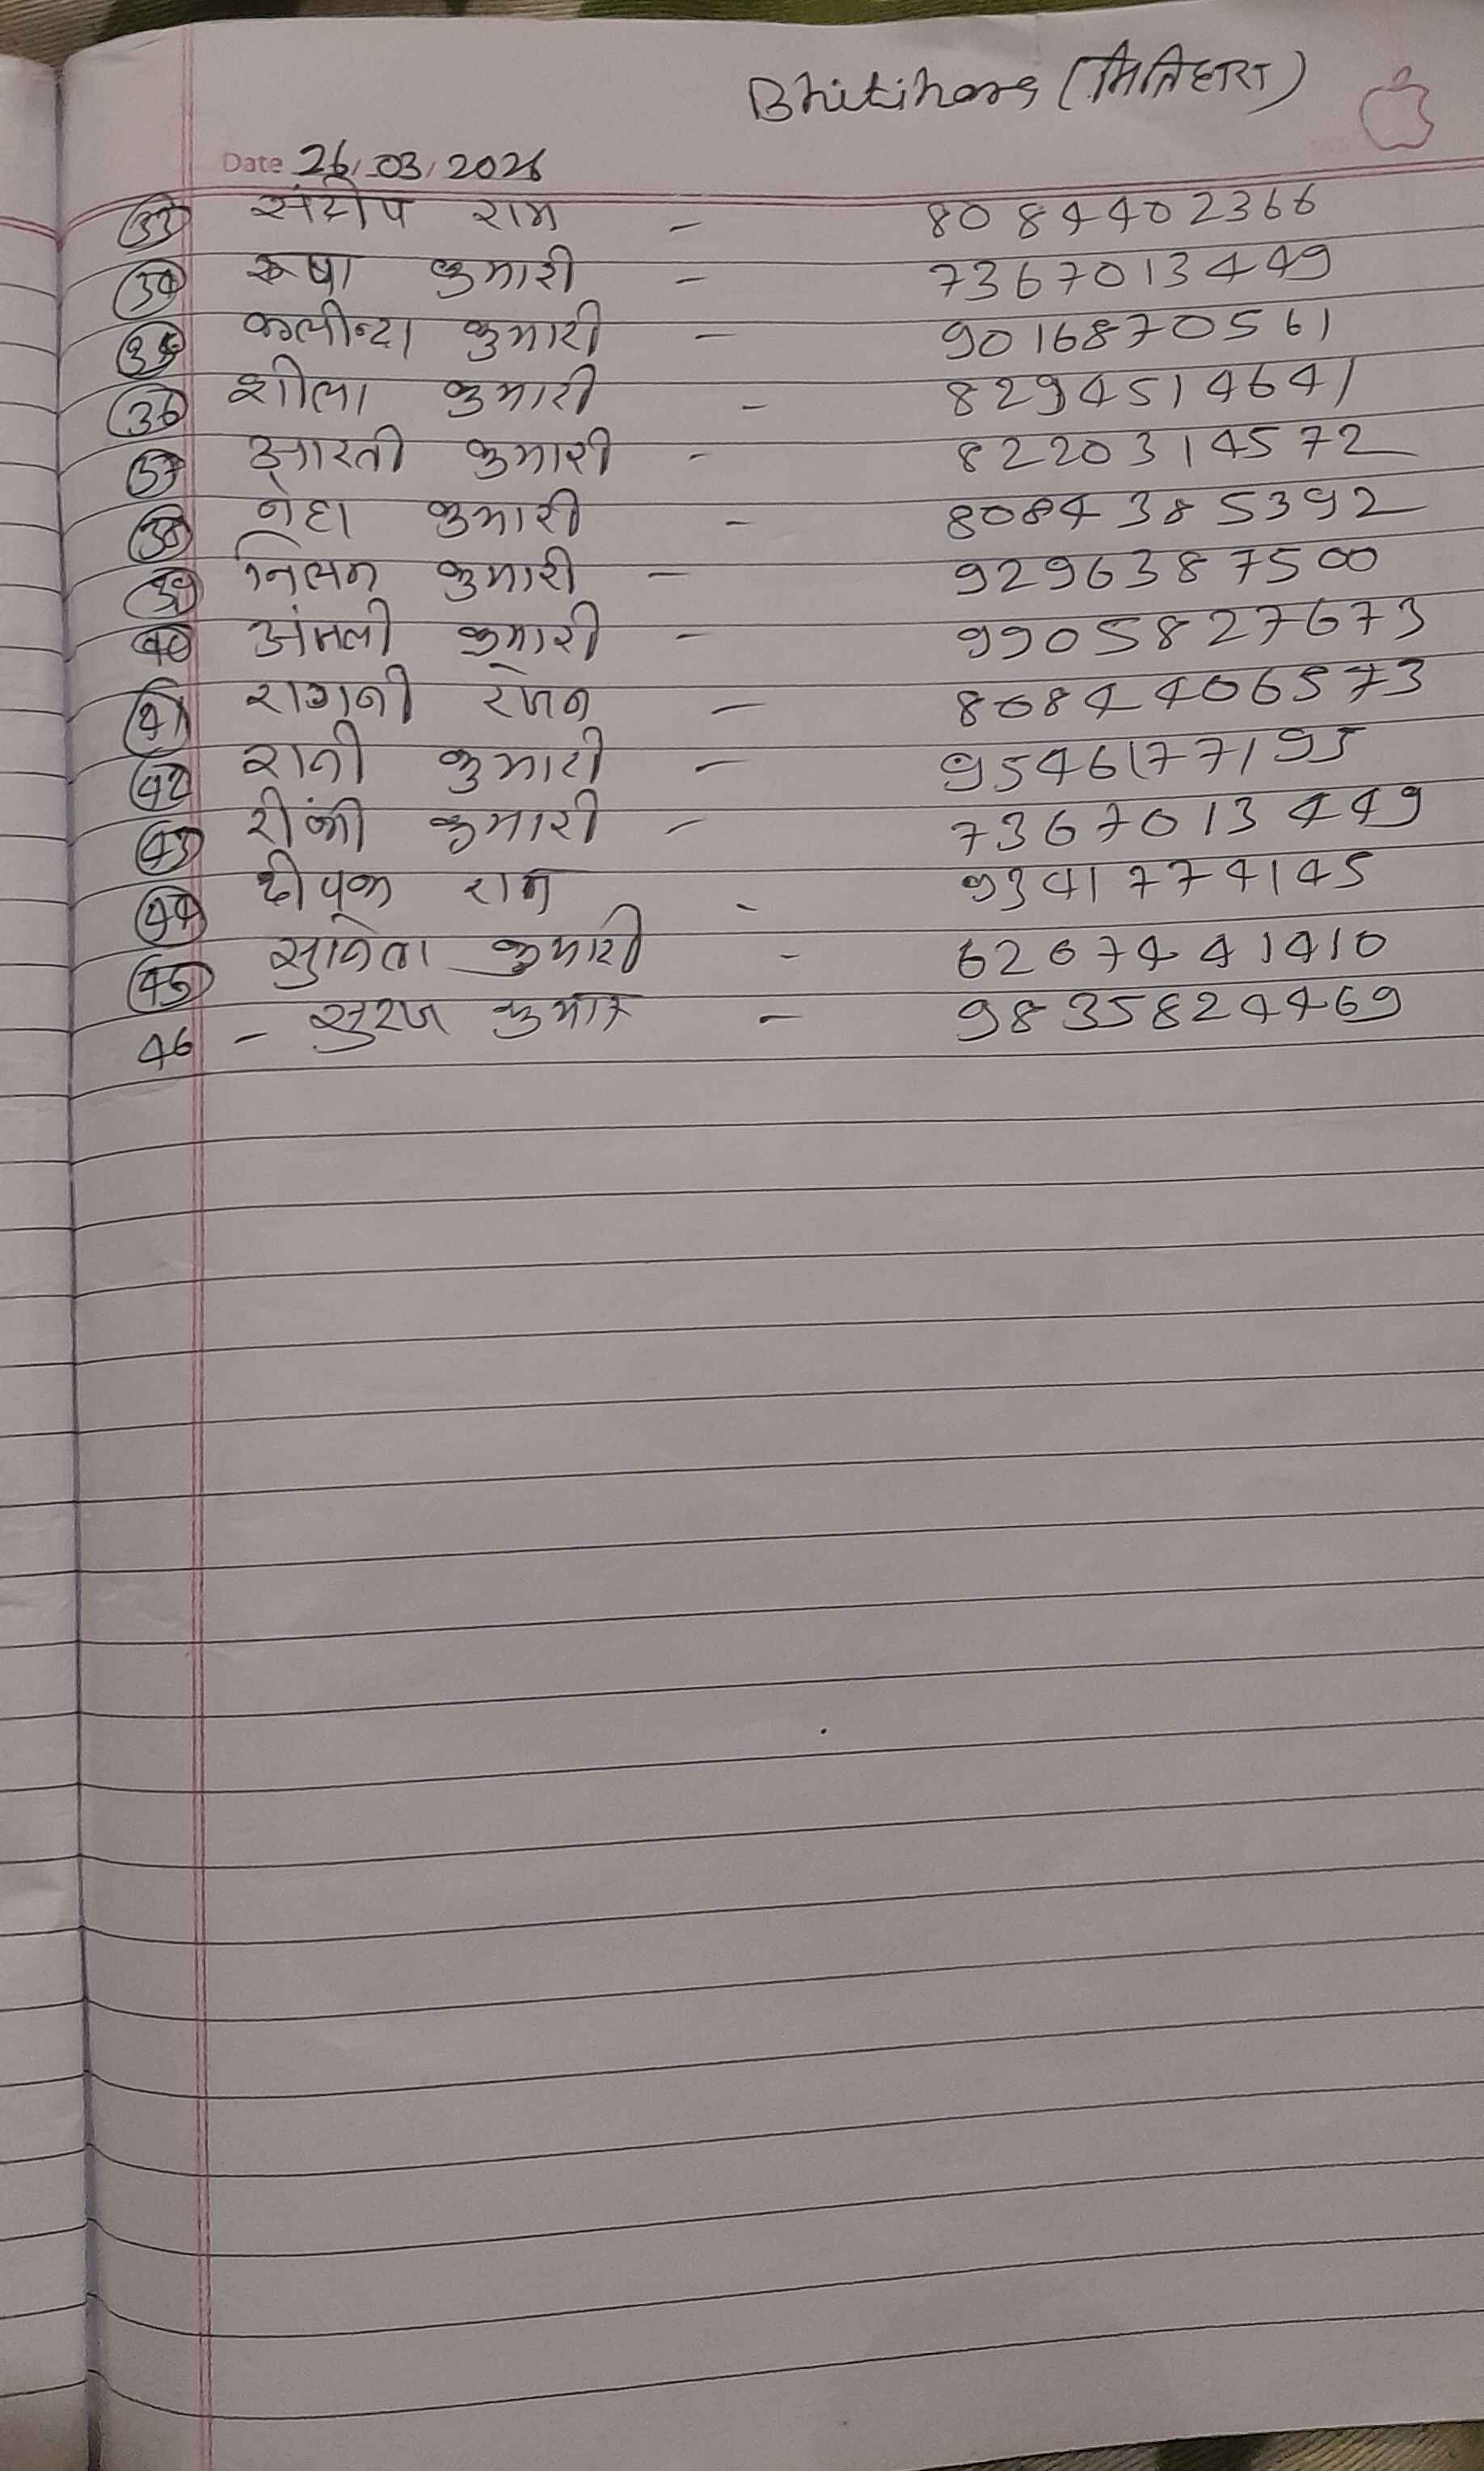 Bhitihara (भितिहरा)
Date 26/03/2026
33 संदीप राम - 8084402366
34 रूषा कुमारी - 7367013449
35 कलीन्दा कुमारी - 9016870561
36 शीला कुमारी - 8294514641
37 आरती कुमारी - 8220314572
38 नेहा कुमारी - 8084385392
39 निलम कुमारी - 9296387500
40 अंजली कुमारी - 9905827673
41 रागनी रंजन - 8084406573
42 रानी कुमारी - 9546177195
43 रींकी कुमारी - 7367013449
44 दीपक राम - 9341774145
45 सुनिता कुमारी - 6267441410
46 - सुरज कुमार - 9835824469